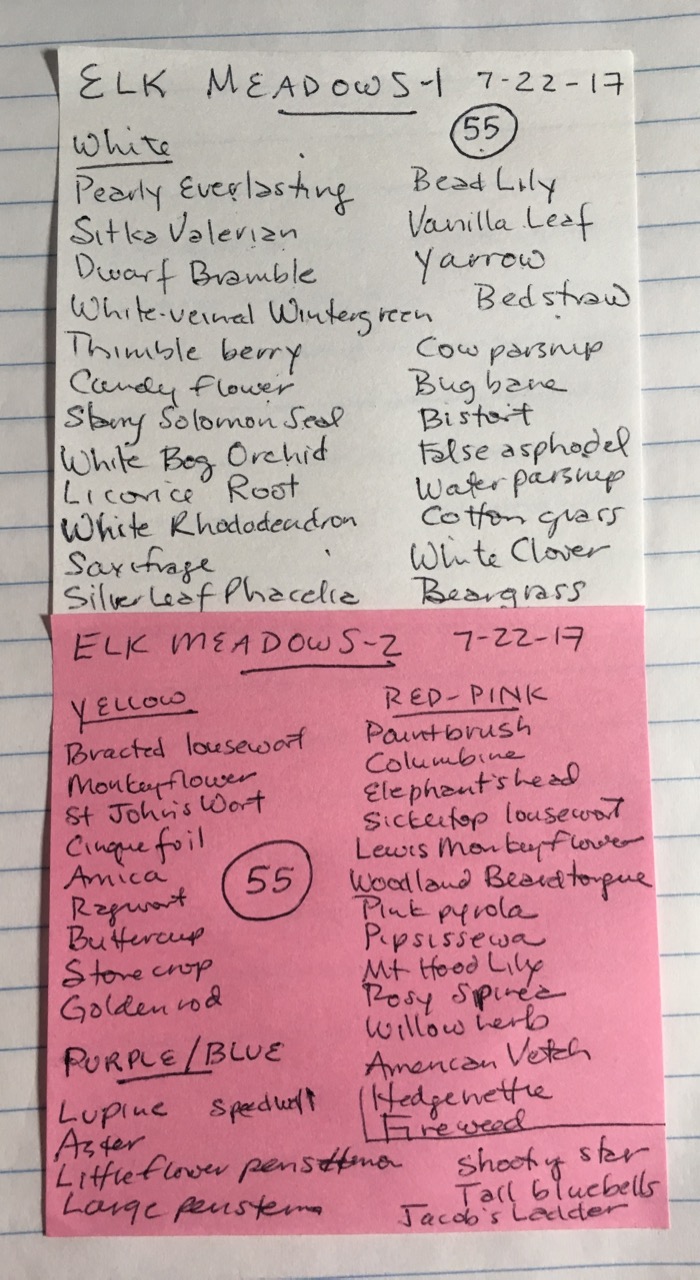 ELK MEADOWS-1 7-22-17
55
White
Pearly Everlasting
Sitka Valerian
Dwarf Bramble
White-veined Wintergreen
Thimble berry
Candy flower
Starry Solomon Seal
White Bog Orchid
Licorice Root
White Rhododendron
Saxifrage
Silverleaf Phacelia
Bead Lily
Vanilla Leaf
Yarrow
Bedstraw
Cow parsnip
Bugbane
Bistort
False asphodel
Water parsnip
Cotton grass
White Clover
Beargrass
ELK MEADOWS-2 7-22-17
YELLOW
Bracted lousewort
Monkeyflower
St John's Wort
Cinquefoil
Arnica
Ragwort
Buttercup
Stonecrop
Goldenrod
55
RED-PINK
Paintbrush
Columbine
Elephant's head
Sickletop lousewort
Lewis Monkeyflower
Woodland Beardtongue
Pink pyrola
Pipsissewa
Mt Hood Lily
Rosy Spirea
Willow herb
American Vetch
Hedgenettle
Fireweed
PURPLE/BLUE
Lupine Speedwell
Aster
Littleflower penstemon
Large penstemon
Shooting star
Tall bluebells
Jacob's Ladder